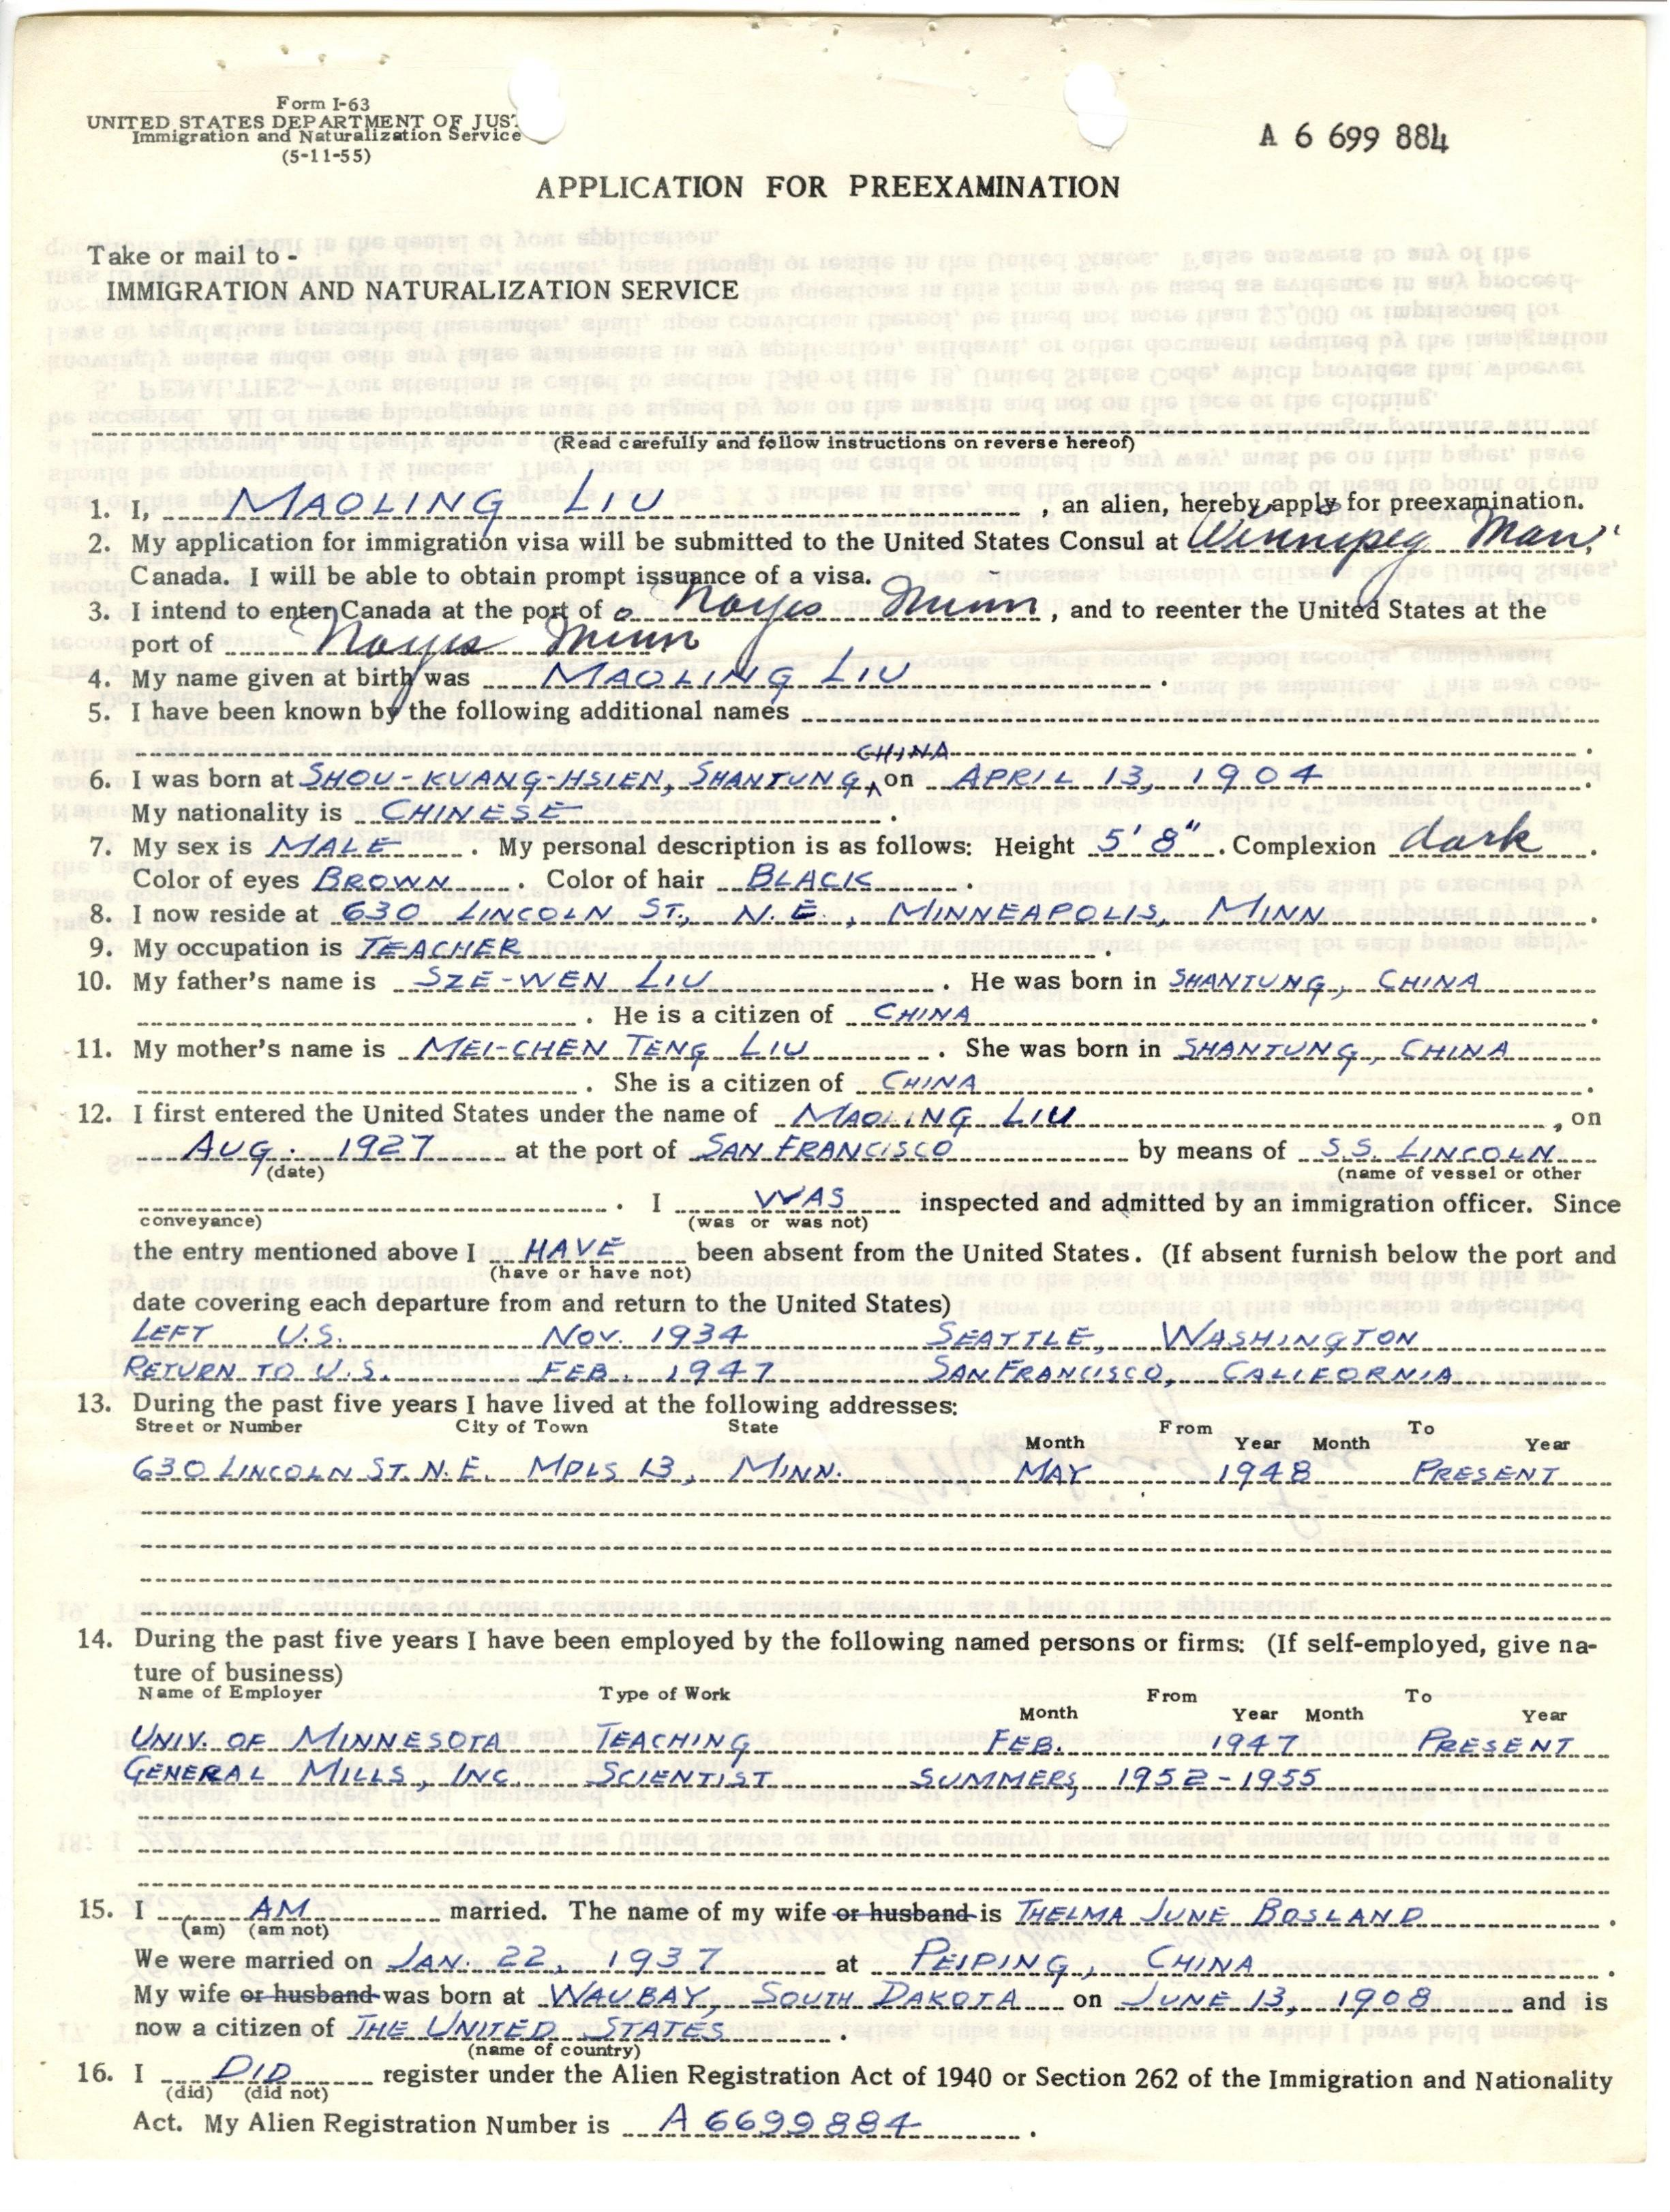 Form I-63
UNITED STATES DEPARTMENT OF JUST
Immigration and Naturalization Service
(5-11-55)
A 6 699 884
APPLICATION FOR PREEXAMINATION
Take or mail to -
IMMIGRATION AND NATURALIZATION SERVICE
(Read carefully and follow instructions on reverse hereof)
1. I, MAOLING LIU, an alien, hereby apply for preexamination.
2. My application for immigration visa will be submitted to the United States Consul at Winnipeg Man,
Canada. I will be able to obtain prompt issuance of a visa.
3. I intend to enter Canada at the port of Noyes Minn, and to reenter the United States at the
port of Noyes Minn
4. My name given at birth was MAOLING LIU.
5. I have been known by the following additional names
CHINA
6. I was born at SHOU-KUANG-HSIEN, SHANTUNG, on APRIL 13, 1904
My nationality is CHINESE.
7. My sex is MALE. My personal description is as follows: Height 5'8". Complexion dark.
Color of eyes BROWN. Color of hair BLACK.
8. I now reside at 630 LINCOLN ST., N.E., MINNEAPOLIS, MINN.
9. My occupation is TEACHER.
10. My father's name is SZE-WEN LIU. He was born in SHANTUNG, CHINA
. He is a citizen of CHINA.
11. My mother's name is MEI-CHEN TENG LIU. She was born in SHANTUNG, CHINA
. She is a citizen of CHINA.
12. I first entered the United States under the name of MAOLING LIU, on
AUG. 1927 at the port of SAN FRANCISCO by means of S.S. LINCOLN
(date) (name of vessel or other
. I WAS inspected and admitted by an immigration officer. Since
conveyance) (was or was not)
the entry mentioned above I HAVE been absent from the United States. (If absent furnish below the port and
(have or have not)
date covering each departure from and return to the United States)
LEFT U.S. NOV. 1934 SEATTLE, WASHINGTON
RETURN TO U.S. FEB. 1947 SAN FRANCISCO, CALIFORNIA
13. During the past five years I have lived at the following addresses:
Street or Number City of Town State From To
Month Year Month Year
630 LINCOLN ST. N.E. MPLS 13, MINN. MAY 1948 PRESENT
14. During the past five years I have been employed by the following named persons or firms: (If self-employed, give na-
ture of business)
Name of Employer Type of Work From To
Month Year Month Year
UNIV. OF MINNESOTA TEACHING FEB. 1947 PRESENT
GENERAL MILLS, INC. SCIENTIST SUMMERS, 1952-1955
15. I AM married. The name of my wife or husband is THELMA JUNE BOSLAND.
(am) (am not)
We were married on JAN. 22, 1937 at PEIPING, CHINA.
My wife or husband was born at WAUBAY, SOUTH DAKOTA on JUNE 13, 1908 and is
now a citizen of THE UNITED STATES.
(name of country)
16. I DID register under the Alien Registration Act of 1940 or Section 262 of the Immigration and Nationality
(did) (did not)
Act. My Alien Registration Number is A6699884.